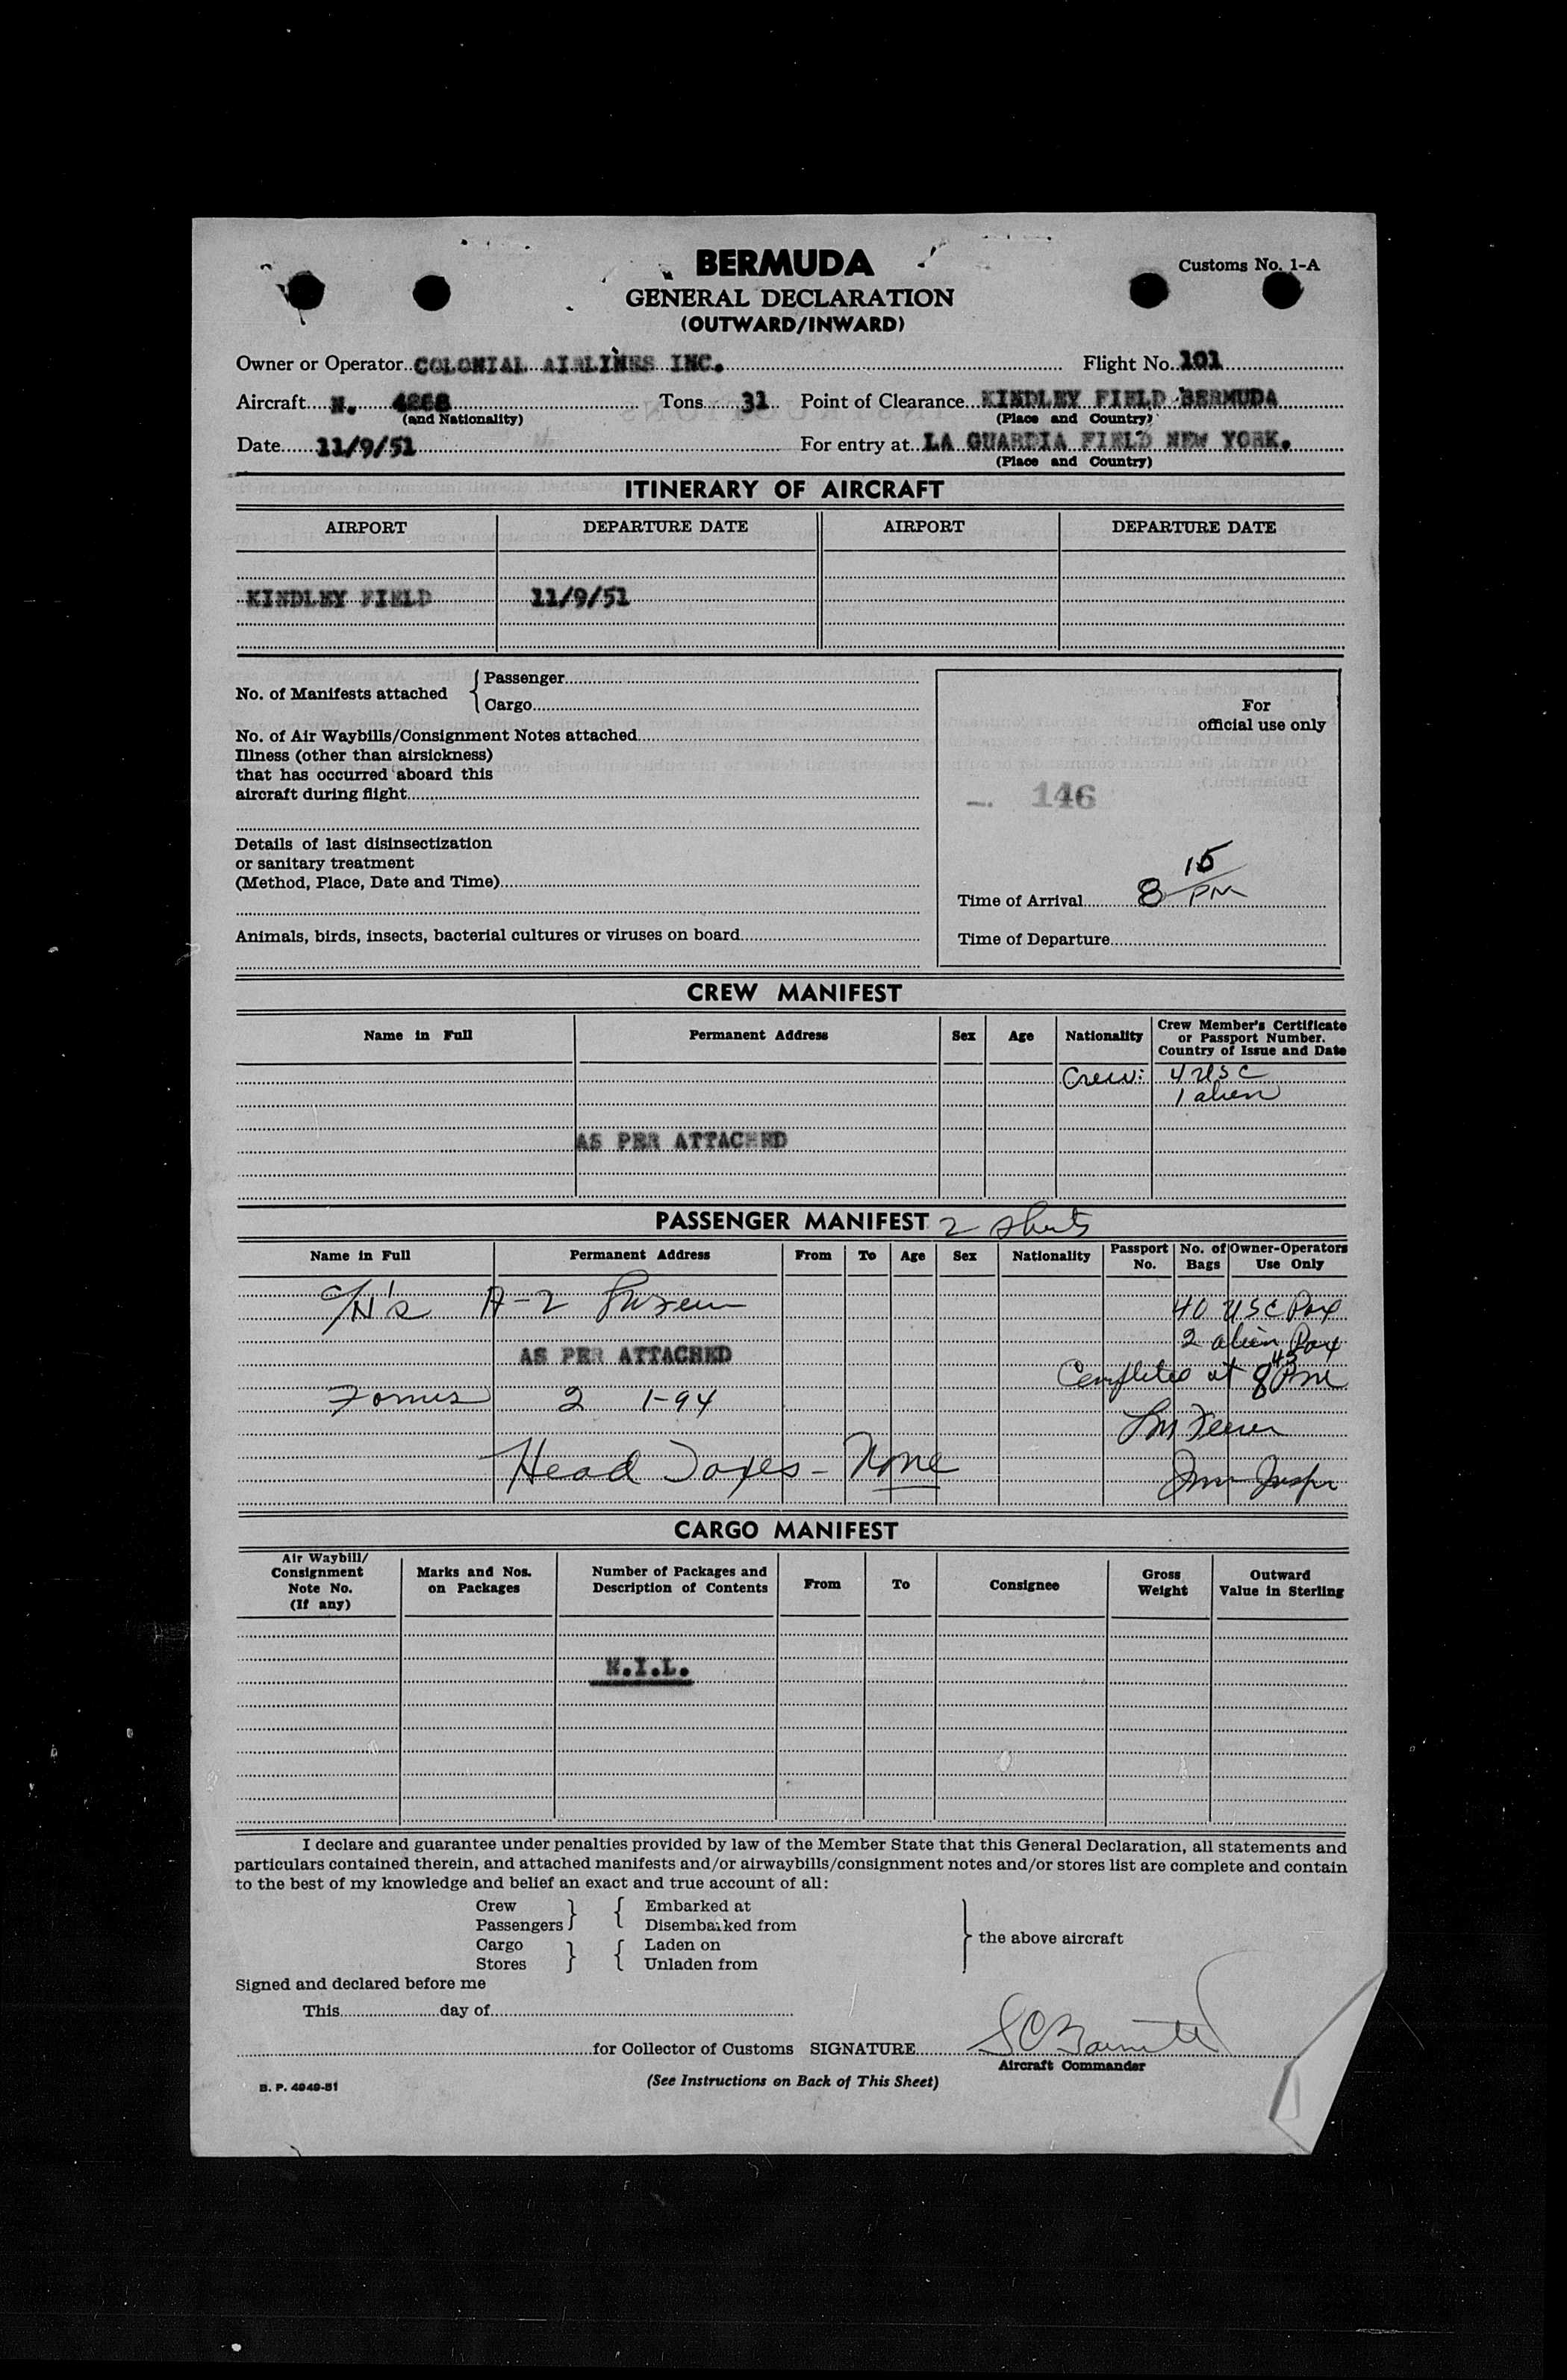 BERMUDA
Customs No. 1-A
GENERAL DECLARATION
(OUTWARD/INWARD)
Owner or Operator COLONIAL AIRLINES INC. Flight No. 101
Aircraft N. 4268 Tons 31 Point of Clearance KINDLEY FIELD BERMUDA
(and Nationality) (Place and Country)
Date 11/9/51 For entry at LA GUARDIA FIELD NEW YORK.
(Place and Country)
ITINERARY OF AIRCRAFT
AIRPORT DEPARTURE DATE AIRPORT DEPARTURE DATE
KINDLEY FIELD 11/9/51
No. of Manifests attached { Passenger
Cargo
For
official use only
No. of Air Waybills/Consignment Notes attached
Illness (other than airsickness)
that has occurred aboard this
aircraft during flight
146
Details of last disinsectization
or sanitary treatment
(Method, Place, Date and Time)
Time of Arrival 8 15 PM
Animals, birds, insects, bacterial cultures or viruses on board
Time of Departure
CREW MANIFEST
Name in Full Permanent Address Sex Age Nationality Crew Member's Certificate
or Passport Number.
Country of Issue and Date
Crew: 4 USC
1 alien
AS PER ATTACHED
PASSENGER MANIFEST 2 sheets
Name in Full Permanent Address From To Age Sex Nationality Passport No. No. of Bags Owner-Operators Use Only
C/N's A-2
40 USC Pax
2 alien Pax
AS PER ATTACHED
Completed at 8 45 PM
Forms 2 I-94
Head Taxes - None
Imm Inspr
CARGO MANIFEST
Air Waybill/
Consignment
Note No.
(If any)
Marks and Nos.
on Packages
Number of Packages and
Description of Contents
From To Consignee
Gross
Weight
Outward
Value in Sterling
N.I.L.
I declare and guarantee under penalties provided by law of the Member State that this General Declaration, all statements and
particulars contained therein, and attached manifests and/or airwaybills/consignment notes and/or stores list are complete and contain
to the best of my knowledge and belief an exact and true account of all:
Crew } { Embarked at
Passengers Disembarked from
Cargo } { Laden on
Stores Unladen from
} the above aircraft
Signed and declared before me
This day of
for Collector of Customs SIGNATURE
Aircraft Commander
B. P. 4949-51
(See Instructions on Back of This Sheet)